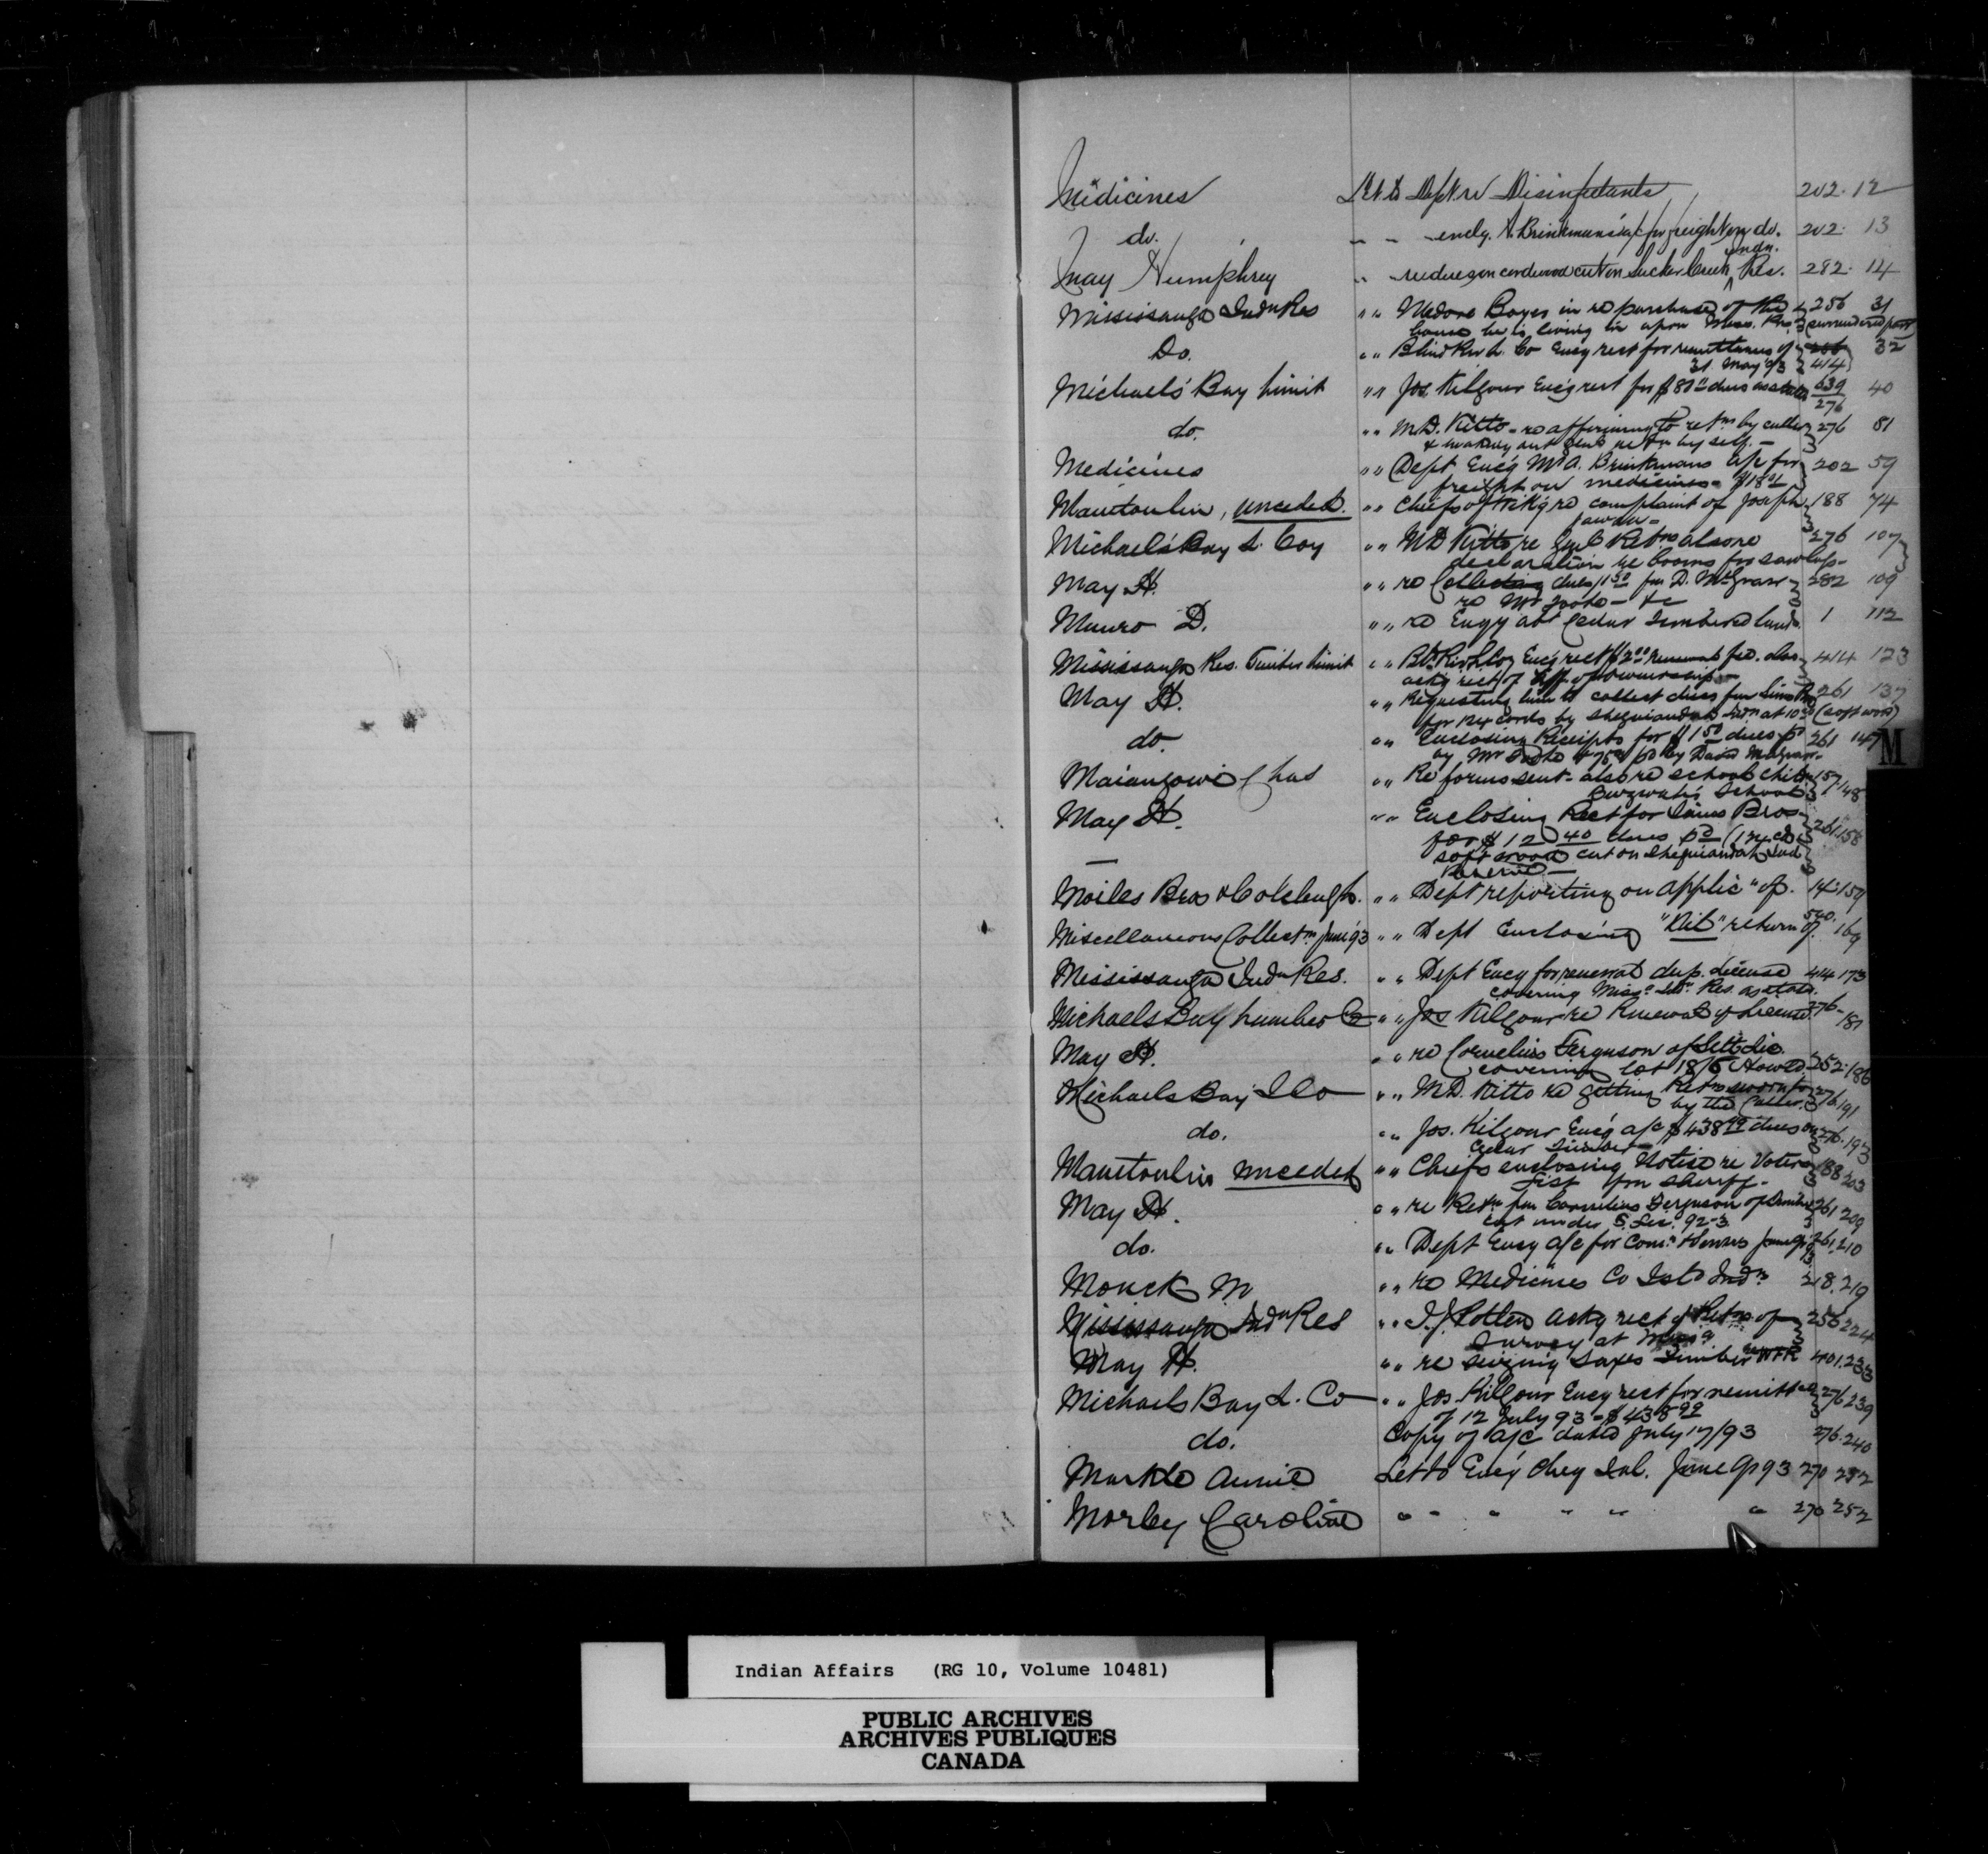 Medicines Let. to Dept re Disinfectants 202. 12
do. " " encly. A. Brinkman's a/c for freight on do. 202. 13
May Humphrey " re dues on cordwood cut on Sucker Creek Indn. Res. 282. 14
Mississauga Indn Res " " Medore Boyer in re purchase of the 256 31
house he is living in upon Miss. Res. (surrendered part)
Do. " " Blind Riv L. Co Encg rect for remittances of 256 32
31 May 93 414
Michaels' Bay Limit " " Jos. Kilgour Enc'g rect for $80 dues as stated 639 40
276
do. " " M.D. Kitto - re affirming to retns by culler 276 81
by self. -
Medicines " " Dept Enc'g Mr A. Brinkmans a/c for 202 59
freight on medicines -
Manitoulin, unceded. " " Chiefs of re complaint of Joseph 188 74
Michaels Bay L. Coy " " M D Kitto re Retns also re 276 107
declaration re booms for saw logs -
May H. " " re Collecting dues 11 50 fm D. McGraw 282 109
re Mr &c
Munro D. " " re Engy abt Cedar Timbered lands 1 112
Mississauga Res. Timber Limit " " Bd. Riv. L. Coy Enc'g rect $2 00 renewal fee. also 414 123
ask'g rect of aff. of ownership -
May H. " " Requesting him to collect dues fm Sims Bros 261 137
for cords by Sheguiandah Indn at 10 (soft wood)
do. " " Enclosing Receipts for $1 50 dues pd 261 147
by Mr & 75 pd by David McGraw -
M
Chas " " Re forms sent - also re school children 157 148
School
May H. " " Enclosing Rect for Sims Bros 261. 158
for $12 40 dues pd (124 cds
soft wood cut on Sheguiandah Ind
Reserve —
Moiles Bros & Co " " Dept reporting on applicn of. 14. 159
Miscellaneous Collectns June '93 " " Dept Enclosing "Nil" return of. 540. 169
Mississauga Indn Res. " " Dept Encg for renewal dup. License 414 173
covering Missa Indn. Res. as stated.
Michaels Bay Lumber Co " " Jos Kilgour re Renewal of License 276 - 181
May H. " " re Cornelius Ferguson of Sett. Lic.
covering lot 18/6 Howland 252. 186
Michaels Bay L Co " " M.D. Kitto re getting Retns sworn to 276. 191
by the Culler.
do. " " Jos. Kilgour Enc'g a/c $438 99 dues on 276. 193
Cedar Timber
Manitoulin unceded " " Chiefs enclosing Notice re Voters 188 203
List fm Sheriff -
May H. " " re Retn fm Cornelius Ferguson of Timber 261 209
cut under S. Lic. 92-3
do. " " Dept Encg a/c for Comn June qr 93 261. 210
Monck M " " re Medicines Co Ist Indn 218. 219
Mississauga Indn Res " " T.J. Patten Askg rect of Retns of 256 224
Survey at Missa
May H. " " re seizing Saxes Timber WFR 401. 233
Michaels Bay L. Co " " Jos. Kilgour Encg rect for remittce 276 239
of 12 July 93 - $438 99
do. Copy of a/c dated July 17/93 276. 240
Markle Annie Let to Enc'g Cheq Sal. June qr 93 270 252
Morley Caroline " " " " " " 270 252
Indian Affairs (RG 10, Volume 10481)
PUBLIC ARCHIVES
ARCHIVES PUBLIQUES
CANADA